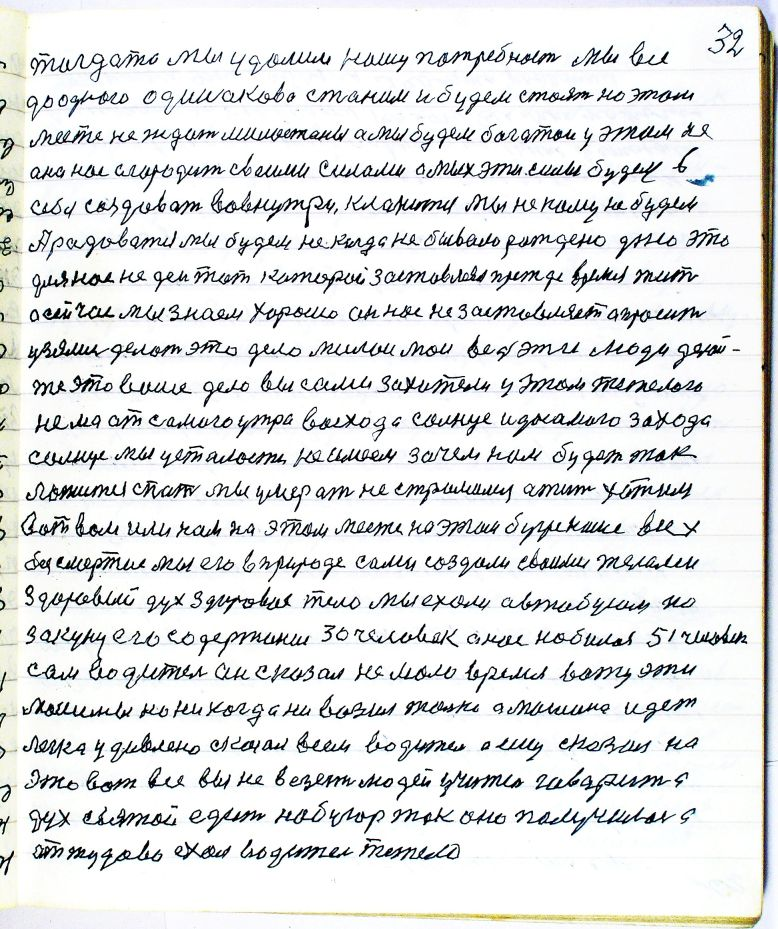 32
тогдато мы удолим нашу потребност мы все
доодного одинаково станим и будем стоят на этом
месте не ждат милостаны а мы будем богатои у этом не
она нас огородит своими силами а мых эти силы будем в
себя создоват вовнутри, кланится мы не кому не будем
А радоватся мы будем не когда не бывало рождено дано это
для нас не ден тот каторой заставлял прежде время жит
а сейчас мы знаем хорошо он нас не заставляет а просит
узями делат это дело милои мои все эти люди делай-
же это ваше дело вы сами захатели у этом тежелого
не ма от самого утра восхода солнце и досамого захода
солнце мы усталости не имеем зачем нам будет так
ложится спат мы умерат не стримимся а жит хотим
вот вам или нам на этом месте на этом бугре наше всех
бесмертие мы его в природе сами создали своими телами
здоровый дух здоровае тело мы ехали автобусам по
закуну его содержание 30 человек а нас набилас 51 человек
сам водител он сказал не мало время вожу эти
машины но никогда не возил толко а машина идет
легка удивлено сказал всем водител а ему сказал на
это вот все вы не везете людей учител гаварит а
дух святой едит на бугор так оно получилас а
оттудово ехал водител тежело